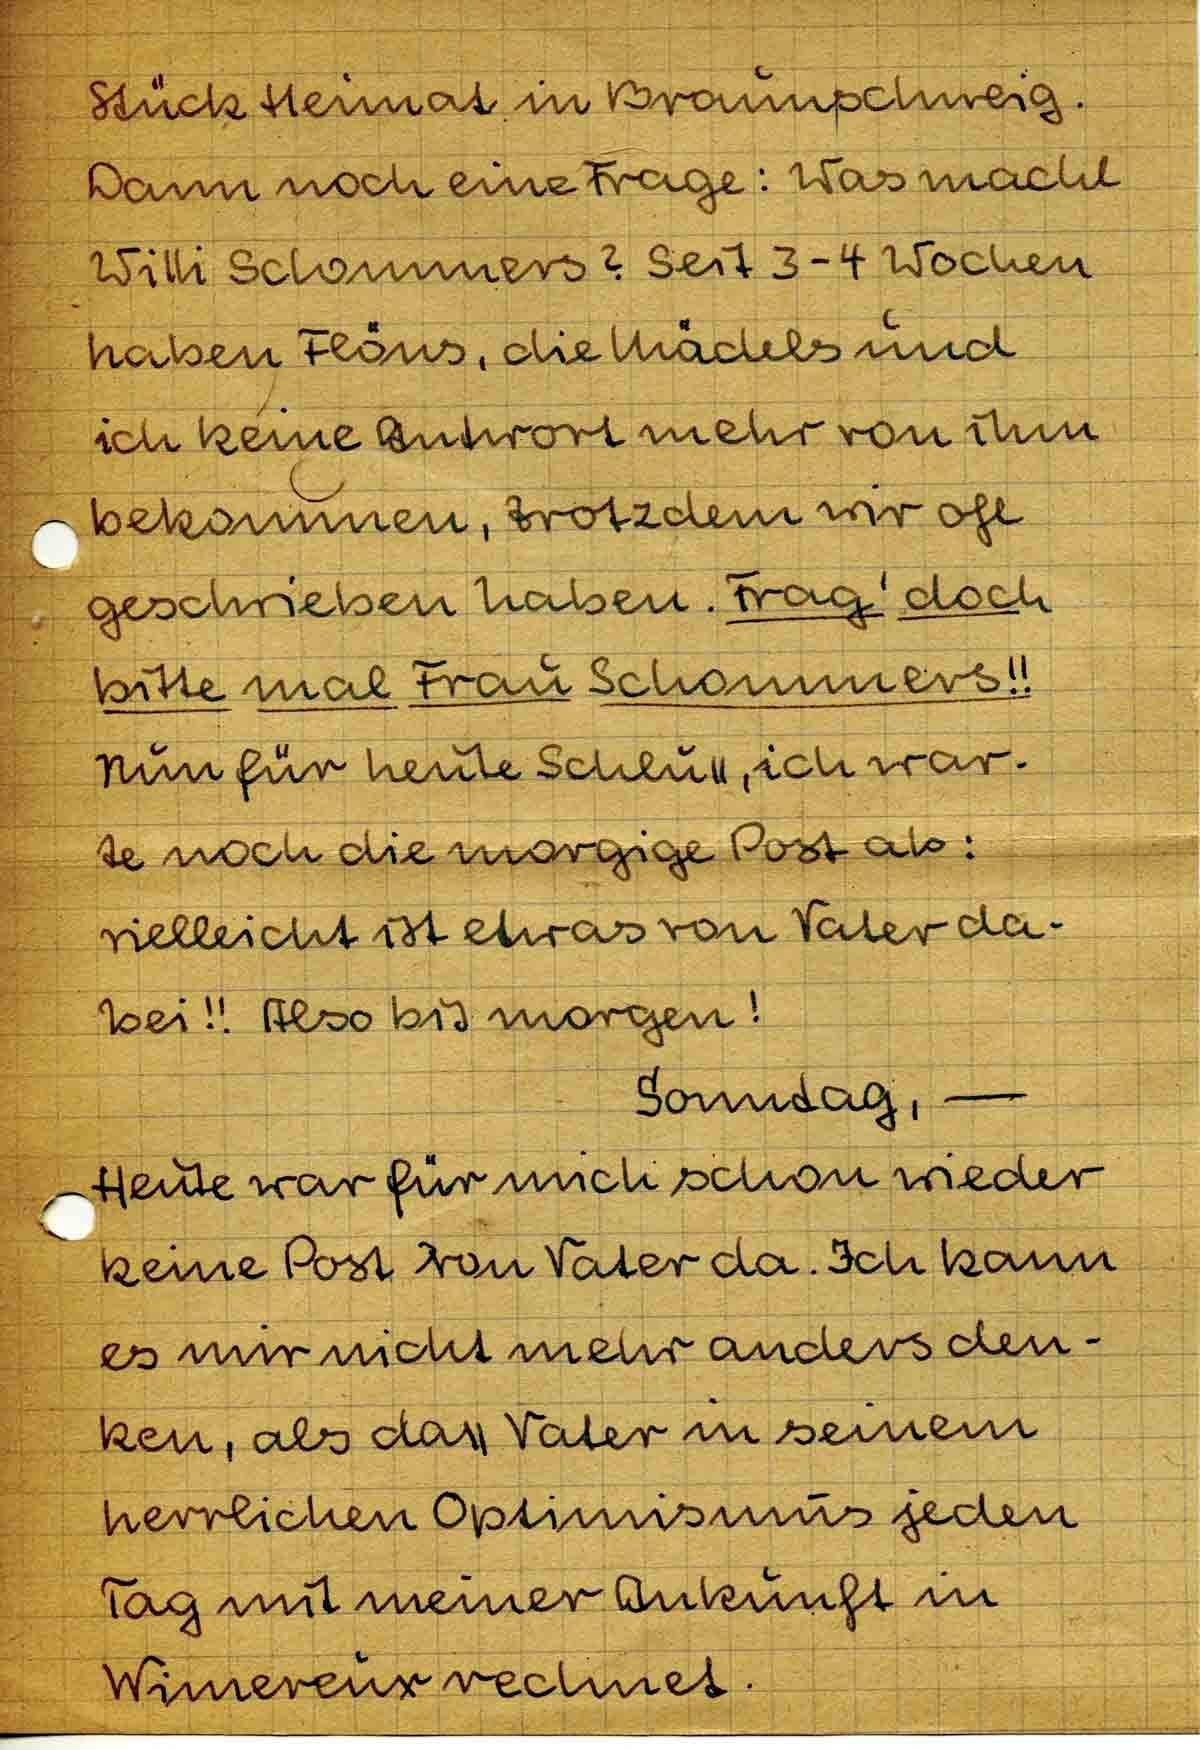 Stück Heimat in Braunschweig.
Dann noch eine Frage: Was macht
Willi Schommers? Seit 3-4 Wochen
haben Flöns, die Mädels und
ich keine Antwort mehr von ihm
bekommen, trotzdem wir oft
geschrieben haben. Frag' doch
bitte mal Frau Schommers!!
Nun für heute Schluß, ich war-
te noch die morgige Post ab:
vielleicht ist etwas von Vater da-
bei!! Also bis morgen!
Sonntag, —
Heute war für mich schon wieder
keine Post von Vater da. Ich kann
es mir nicht mehr anders den-
ken, als daß Vater in seinem
herrlichen Optimismus jeden
Tag mit meiner Ankunft in
Wimereux rechnet.